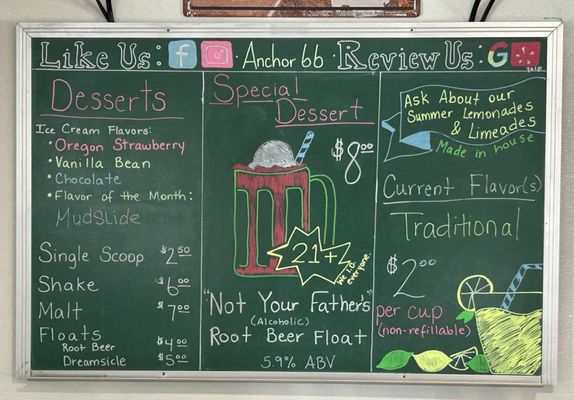 Like Us: f Anchor 66 · Review Us: G yelp
Desserts
Ice Cream Flavors:
• Oregon Strawberry
• Vanilla Bean
• Chocolate
• Flavor of the Month:
Mudslide
Single Scoop $2.50
Shake $6.00
Malt $7.00
Floats
Root Beer $4.00
Dreamsicle $5.00
Special
Dessert
$8.00
21+
We I.D.
everyone.
"Not Your Father's"
(Alcoholic)
Root Beer Float
5.9% ABV
Ask About our
Summer Lemonades
& Limeades
Made in house
Current Flavor(s)
Traditional
$2.00
per cup
(non-refillable)